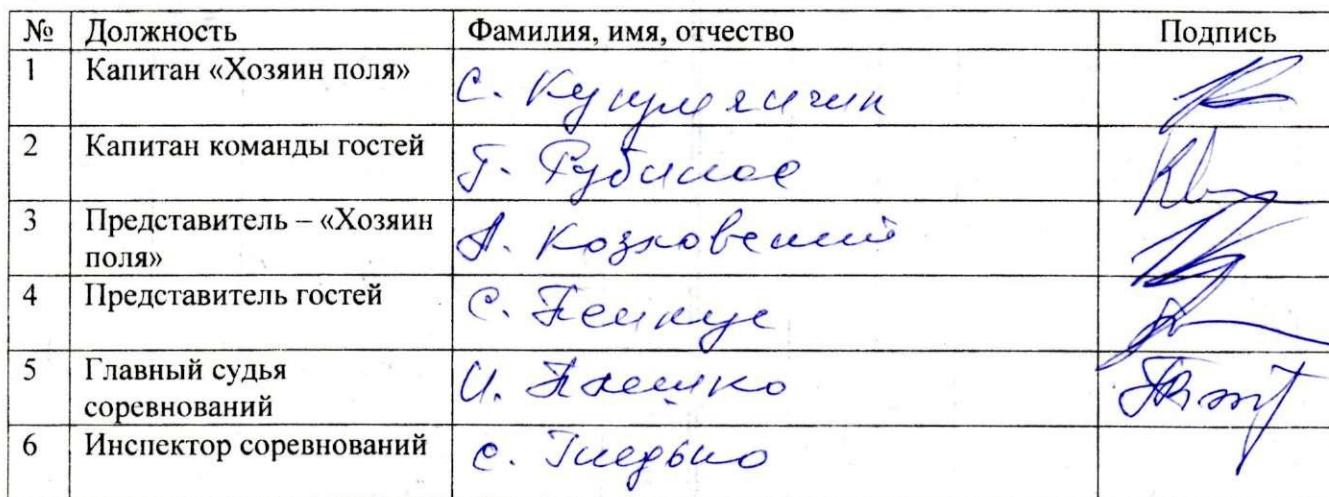 № Должность Фамилия, имя, отчество Подпись
1 Капитан «Хозяин поля» С.
2 Капитан команды гостей Г. Рубинас
3 Представитель – «Хозяин А. Козловский
поля»
4 Представитель гостей С. Пенкус
5 Главный судья И. Пашко
соревнований
6 Инспектор соревнований С. Гледько